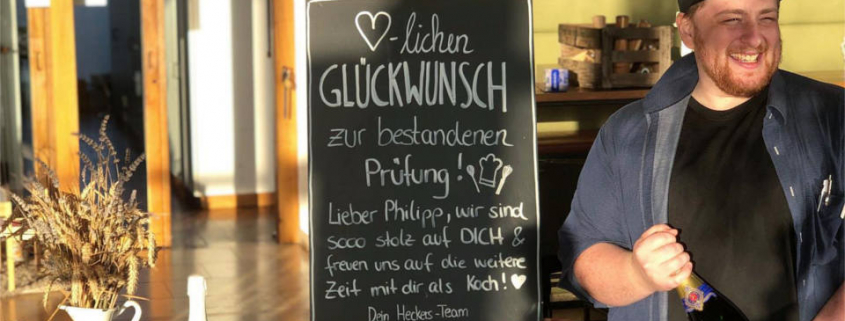 ♡-lichen
GLÜCKWUNSCH
zur bestandenen
Prüfung!
Lieber Philipp, wir sind
sooo stolz auf DICH &
freuen uns auf die weitere
Zeit mit dir, als Koch! ♡
Dein Heckers-Team